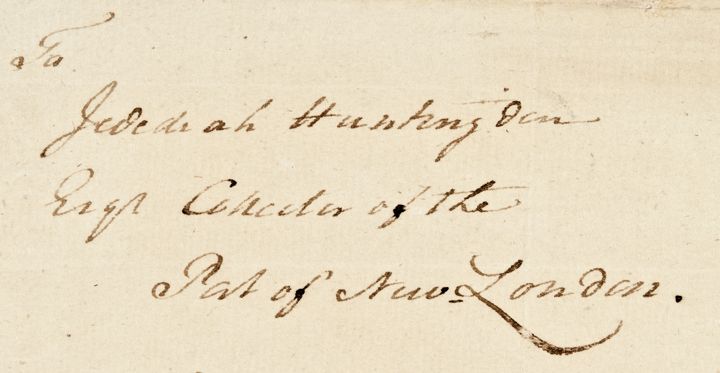 To
Jedediah Huntingden
Esqr Collector of the
Port of New-London.